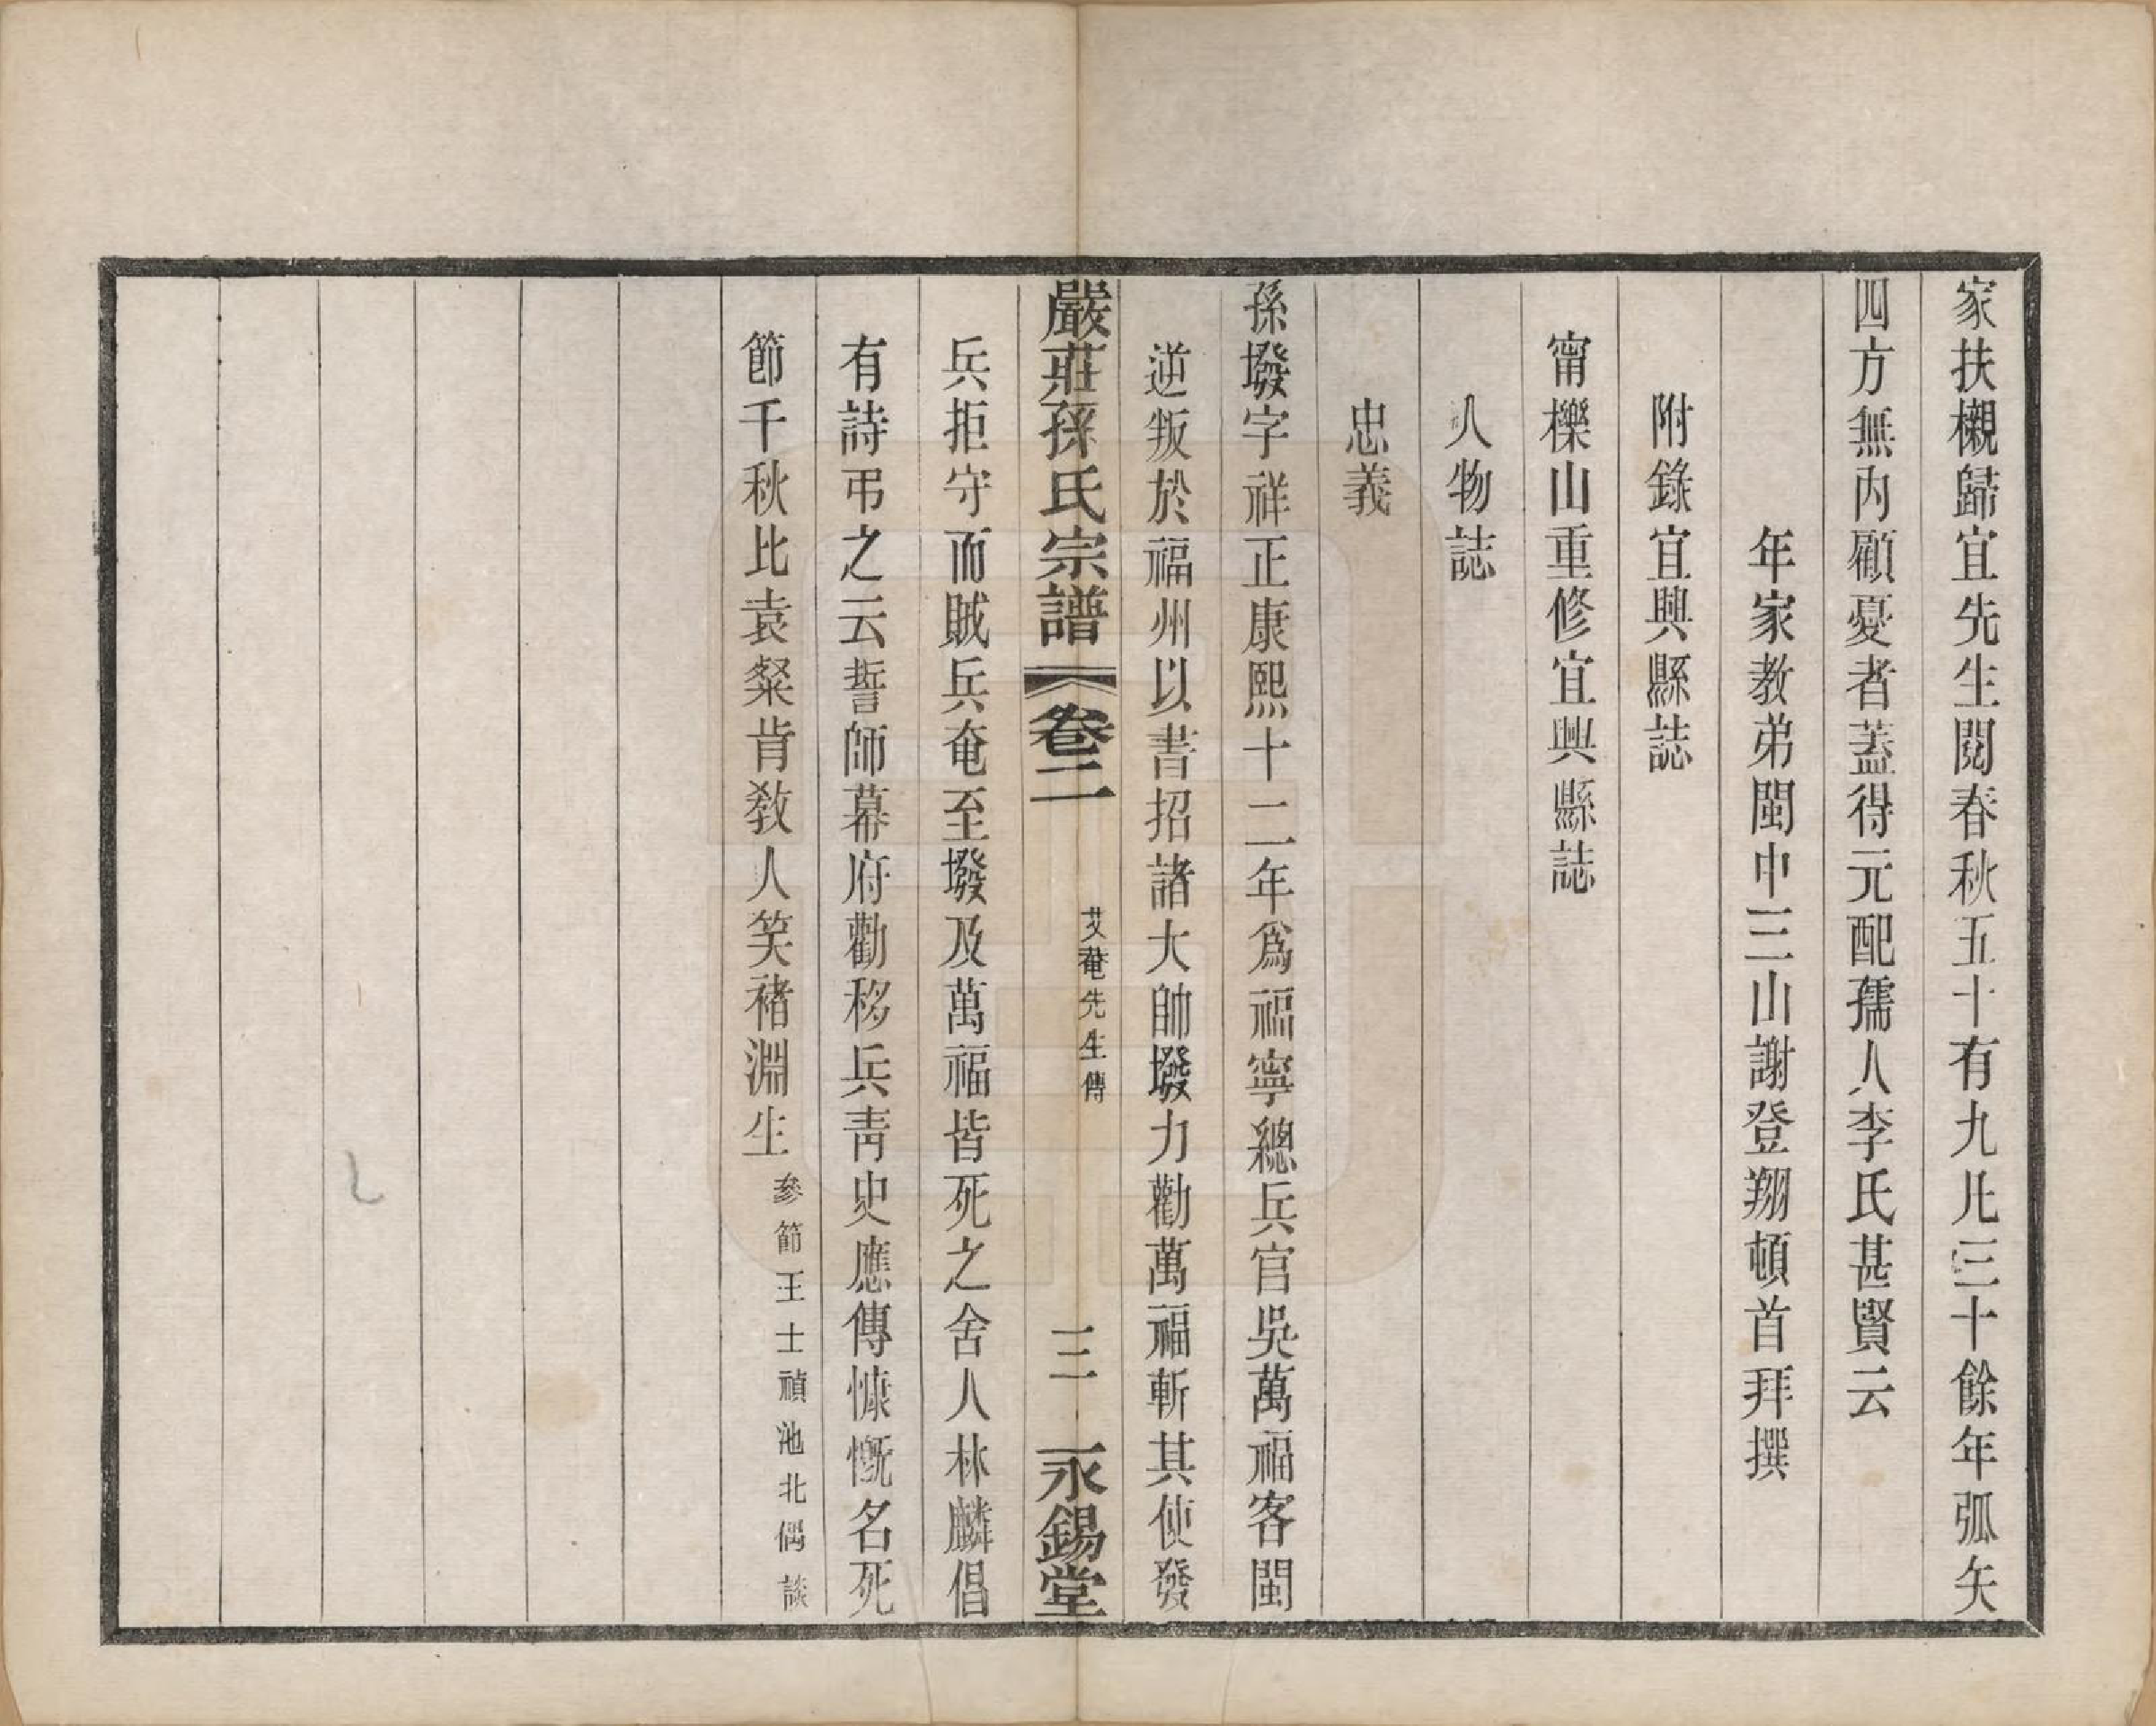 家扶櫬歸宜先生閱春秋五十有九凡三十餘年弧矢
四方無內顧憂者蓋得元配孺人李氏甚賢云
年家教弟閩中三山謝登翔頓首拜撰
附錄宜興縣誌
甯櫟山重修宜興縣誌
人物誌
忠義
孫墢字祥正康熙十二年爲福寧總兵官吳萬福客閩
逆叛於福州以書招諸大帥墢力勸萬福斬其使發
嚴莊孫氏宗譜 卷二 艾菴先生傳 三 永錫堂
兵拒守而賊兵奄至墢及萬福皆死之舍人林麟倡
有詩弔之云誓師幕府勸移兵靑史應傳慷慨名死
節千秋比袁粲肯教人笑褚淵生 參節王士禎池北偶談